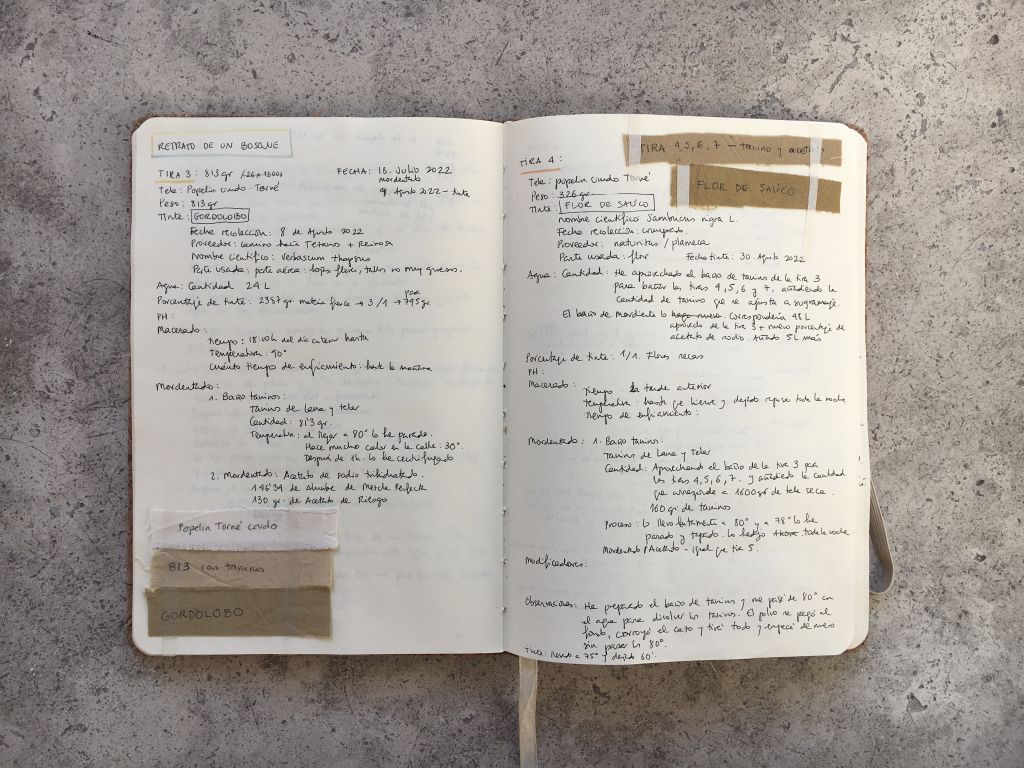 RETRATO DE UN BOSQUE
TIRA 3: 813 gr
FECHA: 18. Julio 2022
mordentado
9. Agosto 2022 - tinte
Tela: Popelín crudo Torné
Peso: 813 gr
Tinte: GORDOLOBO
Fecha recolección: 8 de Agosto 2022
Proveedor: camino hacia + Reinosa
Nombre científico: Verbascum thapsus
Parte usada: parte aérea: hojas, flores, tallos no muy gruesos.
Agua: Cantidad 24 L
Porcentaje de tinte: 2387 gr. materia fresca → 3/1 → 795 gr.
PH:
Macerado:
Tiempo: 18:00h del día anterior hasta
Temperatura: 90°
Cuánto tiempo de enfriamiento: hasta la mañana
Mordentado:
1. Baño taninos:
Taninos de Lana y telar
Cantidad: 81'3 gr.
Temperatura: al llegar a 80° lo he parado.
Hace mucho calor en la calle: 30°.
Después de 1h. lo he centrifugado
2. Mordentado: Acetato de sodio trihidratado.
146'34 de alumbre de
130 gr. de Acetato de Riesgo
Popelín Torné crudo
813 con taninos
GORDOLOBO
TIRA 4,5,6,7 - tanino y acetato
FLOR DE SAÚCO
TIRA 4:
Tela: popelín crudo Torné
Peso: 326 gr.
Tinte: FLOR DE SAÚCO
Nombre científico Sambucus nigra L.
Fecha recolección: comprado.
Proveedor: naturitas / plameca
Parte usada: flor
Fecha tinte: 30. Agosto 2022
Agua: Cantidad: He aprovechado el baño de taninos de la tira 3
para bañar las tiras 4, 5, 6 y 7, añadiendo la
cantidad de tanino que se ajusta a su gramaje.
El baño de mordiente lo hago nuevo. Correspondería 48 L
aprovecho de la tira 3 + nuevo porcentaje de
acetato de sodio. Añado 5L más
Porcentaje de tinte: 1/1. Flores secas
PH:
Macerado:
Tiempo: la tarde anterior
Temperatura: hasta que hierve y dejado reposo toda la noche
Tiempo de enfriamiento:
Mordentado: 1. Baño tanino:
Taninos de Lana y Telar
Cantidad: Aprovechando el baño de la tira 3 para
las tiras 4, 5, 6, 7. y añadiendo la cantidad
que corresponde a 1600 gr de tela seca.
160 gr de taninos
Proceso: Lo llevo lentamente a 80° y a 78° lo he
parado y tapado. Lo toda la noche
Mordentado / Acetato - igual que tira 5.
Modificadores:
Observaciones: He preparado el baño de taninos y me pasé de 80° en
el agua para disolver los taninos. El polvo se pegó al
fondo, corroyó el cazo y tiré todo y empecé de nuevo
sin pasar los 80°.
Tinte: llevado a 75° y dejado 60'.